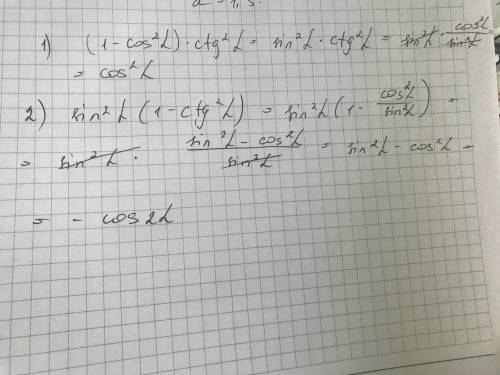 1) (1 - cos²α) · ctg²α = sin²α · ctg²α = sin²α · cos²α/sin²α =
= cos²α
2) sin²α (1 - ctg²α) = sin²α (1 - cos²α/sin²α) =
= sin²α · (sin²α - cos²α)/sin²α = sin²α - cos²α =
= - cos2α